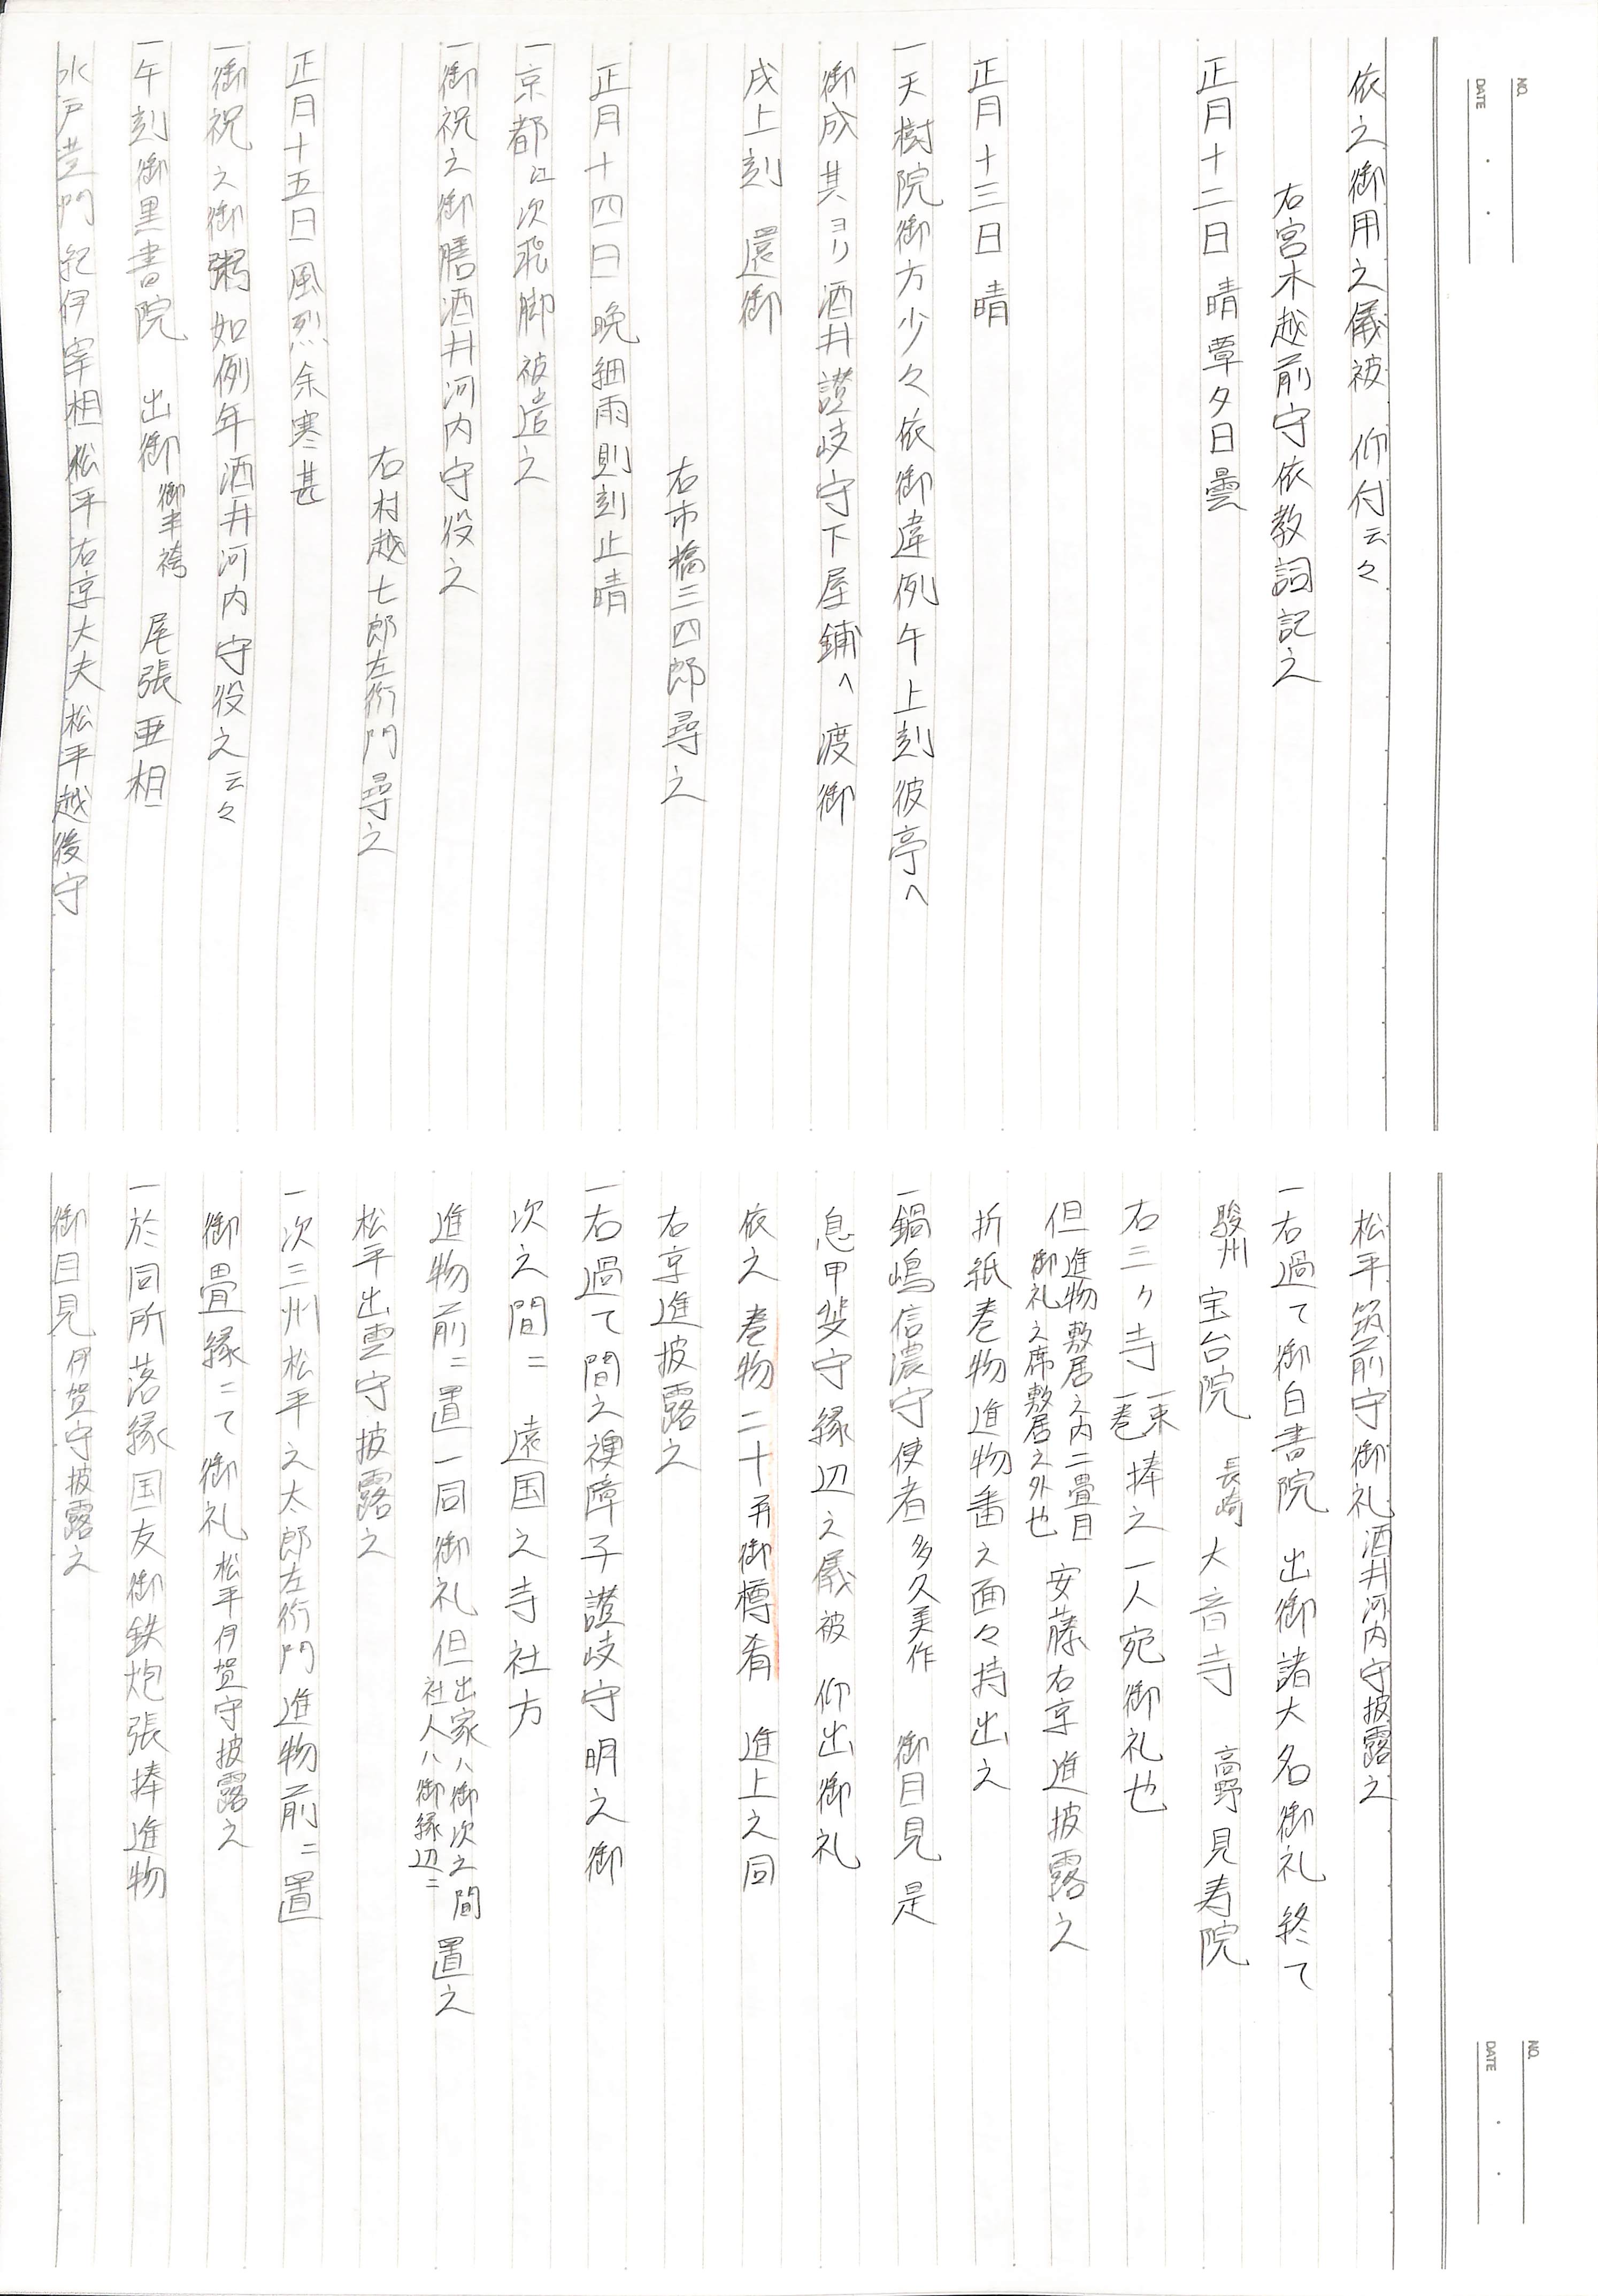 NO.
DATE
依之御用之儀被 仰付云々
右宮木越前守依教詞記之
正月十二日 晴 蕈夕日曇
正月十三日 晴
一天樹院御方少々依御違例午上刻彼亭へ
御成其ヨリ酒井讃岐守下屋鋪へ渡御
戌上刻 還御
右市橋三四郎尋之
正月十四日 晩細雨則刻止晴
一京都江次飛脚被遣之
一御祝之御膳酒井河内守役之
右村越七郎左衛門尋之
正月十五日 風烈余寒甚
一御祝之御粥如例年酒井河内守役之云々
一午刻御黒書院 出御 御半袴 尾張亜相
水戸黄門紀伊宰相松平右京大夫松平越後守
NO.
DATE
松平筑前守御礼酒井河内守披露之
一右過て御白書院 出御諸大名御礼終て
駿州 宝台院 長崎 大音寺 高野 見寿院
右三ヶ寺 一束 一巻 捧之一人宛御礼也
但 進物敷居之内二畳目 御礼之席敷居之外也 安藤右京進披露之
折紙巻物進物番之面々持出之
一鍋嶋信濃守使者 多久美作 御目見是
息甲斐守縁辺之儀被 仰出御礼
依之巻物二十弄御樽肴 進上之同
右京進披露之
一右過て間之襖障子讃岐守明之御
次之間ニ 遠国之寺社方
進物前ニ置一同御礼但 出家ハ御次之間 社人ハ御縁辺ニ 置之
松平出雲守披露之
一次三州松平之太郎左衛門進物前ニ置
御畳縁ニて御礼 松平伊賀守披露之
一於同所落縁国友御鉄炮張捧進物
御目見 伊賀守披露之